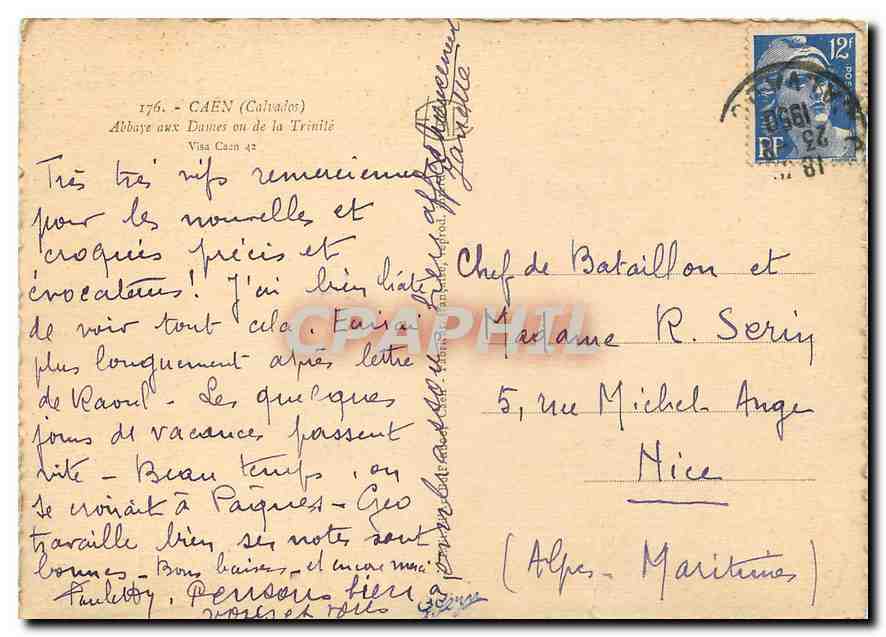 176. - CAEN (Calvados)
Abbaye aux Dames ou de la Trinité
Visa Caen 42
Très très vifs remerciements
pour les nouvelles et
croquis précis et
évocateurs! J'ai bien hâte
de voir tout cela. Ecrirai
plus longuement après lettre
de Raoul - Les quelques
jours de vacances passent
vite - Beau temps, on
se croirait à Pâques - Geo
travaille bien, ses notes sont
bonnes - Bons baisers - et encore merci
Paulette. Pensons bien
à vous et vous
embrassons bien affectueusement
12F
POSTES
RF
18
23
1950
Chef de Bataillon et
Madame R. Serin
5, rue Michel-Ange
Nice
(Alpes-Maritimes)
CPAPHIL